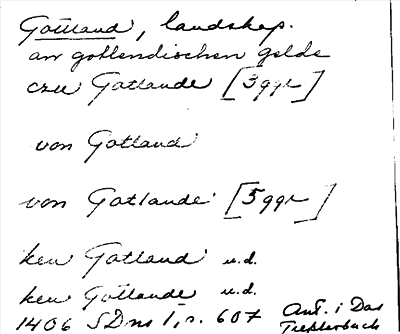 Gottland, landskap.
an gotlendischen gelde
czu Gotlande [3 ggr]
von Gotland
von Gotlande [5 ggr]
ken Gotland u.d.
ken Gotlande u.d.
1406 SDns 1, s. 607 Ant. i Das
Tresslerbuch